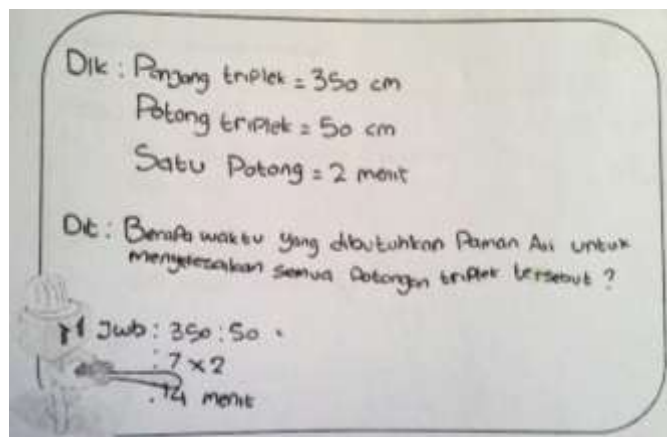 Dik : Panjang triplek = 350 cm
Potong triplek = 50 cm
Satu Potong = 2 menit
Dit : Berapa waktu yang dibutuhkan Paman Adi untuk
menyelesaikan semua potongan triplek tersebut ?
Jwb : 350 : 50
: 7 x 2
: 14 menit